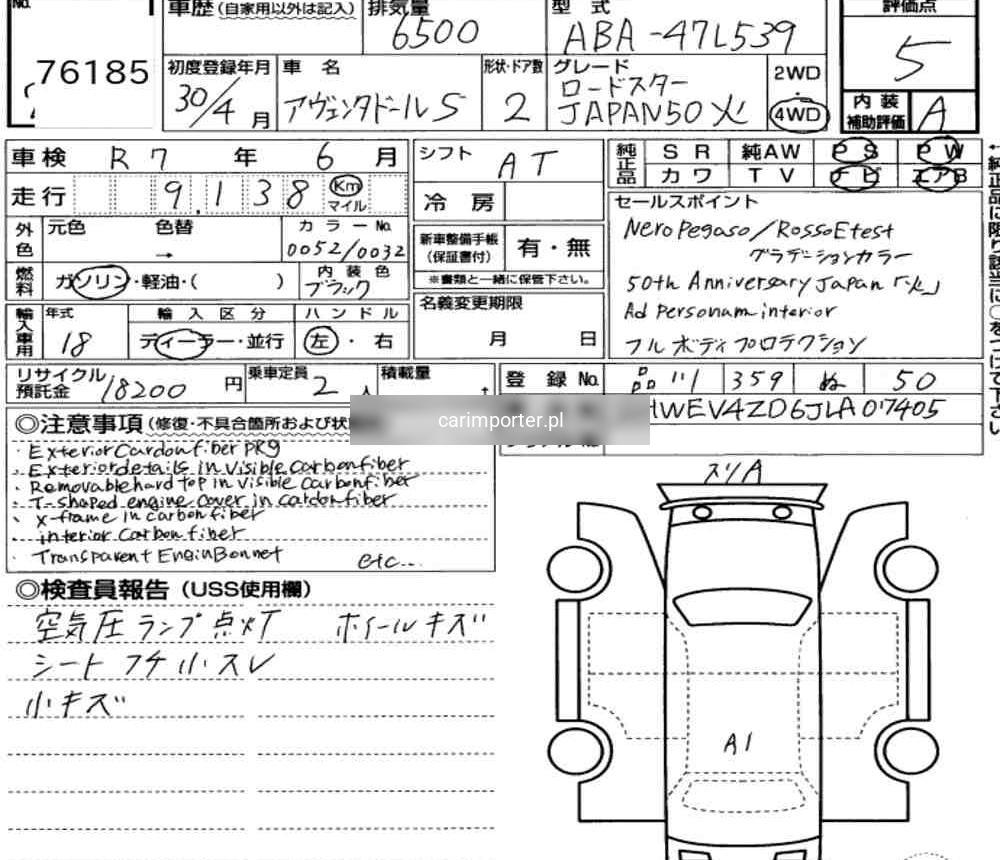 No.
76185
車歴(自家用以外は記入)
排気量
6500
型 式
ABA-47L539
評価点
5
初度登録年月
30/4月
車 名
アヴェンタドールS
形状・ドア数
2
グレード
ロードスター
JAPAN50 火
2WD
・
4WD
内 装
補助評価
A
車検 R7 年 6 月
走行 9,138 Km
マイル
シフト AT
冷 房
純正品
SR 純AW PS PW
カワ TV ナビ エアB
外色
元色 色替
→
カラーNo.
0052/0032
燃料
ガソリン・軽油・( )
内 装 色
ブラック
新車整備手帳
(保証書付)
有・無
※書類と一緒に保管下さい。
セールスポイント
Nero Pegaso/Rosso Etest
グラデーションカラー
50th Anniversary Japan「火」
Ad Personam interior
フルボディプロテクション
輸入車用
年式
18
輸 入 区 分
ディーラー・並行
ハ ン ド ル
左・右
名義変更期限
月 日
リサイクル
預託金
18200円
乗車定員
2人
積載量
t
登 録 No.
品川 359 ぬ 50
HWEV4ZD6JLA07405
carimporter.pl
◎注意事項(修復・不具合箇所および状
・Exterior Cardon fiber PKg
・Exterior details in visible carbon fiber
・Removable hard top in visible Carbon fiber
・T-shaped engine cover in cardon fiber
・X-frame in carbon fiber
・interior Carbon fiber
・Transparent Engin Bonnet etc...
◎検査員報告(USS使用欄)
空気圧ランプ点灯 ホイールキズ
シートフチ小スレ
小キズ
スリA
A1
←純正品に限り該当に○をつけて下さい